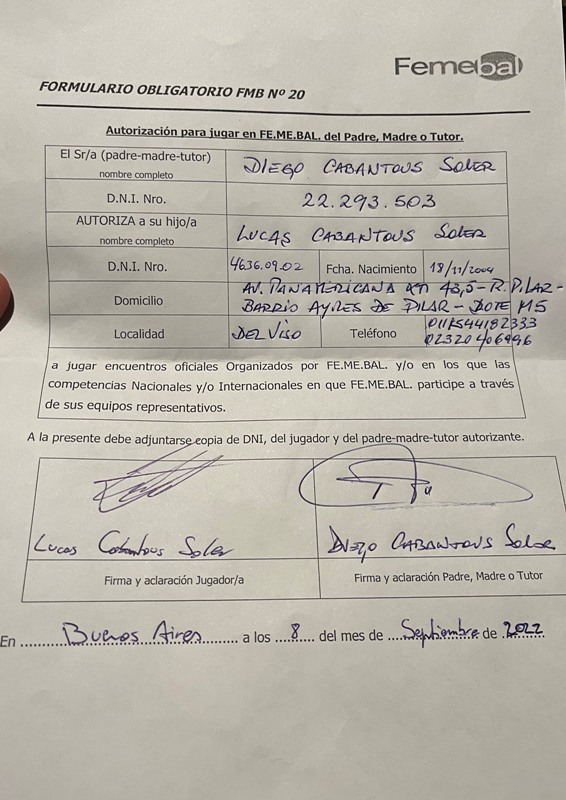 Femebal
FORMULARIO OBLIGATORIO FMB Nº 20
Autorización para jugar en FE.ME.BAL. del Padre, Madre o Tutor.
El Sr/a (padre-madre-tutor) DIEGO CABANTOUS SOLER
nombre completo
D.N.I. Nro. 22.293.503
AUTORIZA a su hijo/a LUCAS CABANTOUS SOLER
nombre completo
D.N.I. Nro. 4636.09.02 Fcha. Nacimiento 18/11/2004
Domicilio AV. PANAMERICANA KM 43,5 - R. PILAR -
BARRIO AYRES DE PILAR - M5
Localidad DEL VISO Teléfono 44182333
02320 406996
a jugar encuentros oficiales Organizados por FE.ME.BAL. y/o en los que las
competencias Nacionales y/o Internacionales en que FE.ME.BAL. participe a través
de sus equipos representativos.
A la presente debe adjuntarse copia de DNI, del jugador y del padre-madre-tutor autorizante.
Lucas Cabantous Soler DIEGO CABANTOUS SOLER
Firma y aclaración Jugador/a Firma y aclaración Padre, Madre o Tutor
En ....... Buenos Aires ......... a los ... 8 .... del mes de .... Septiembre de .2022......